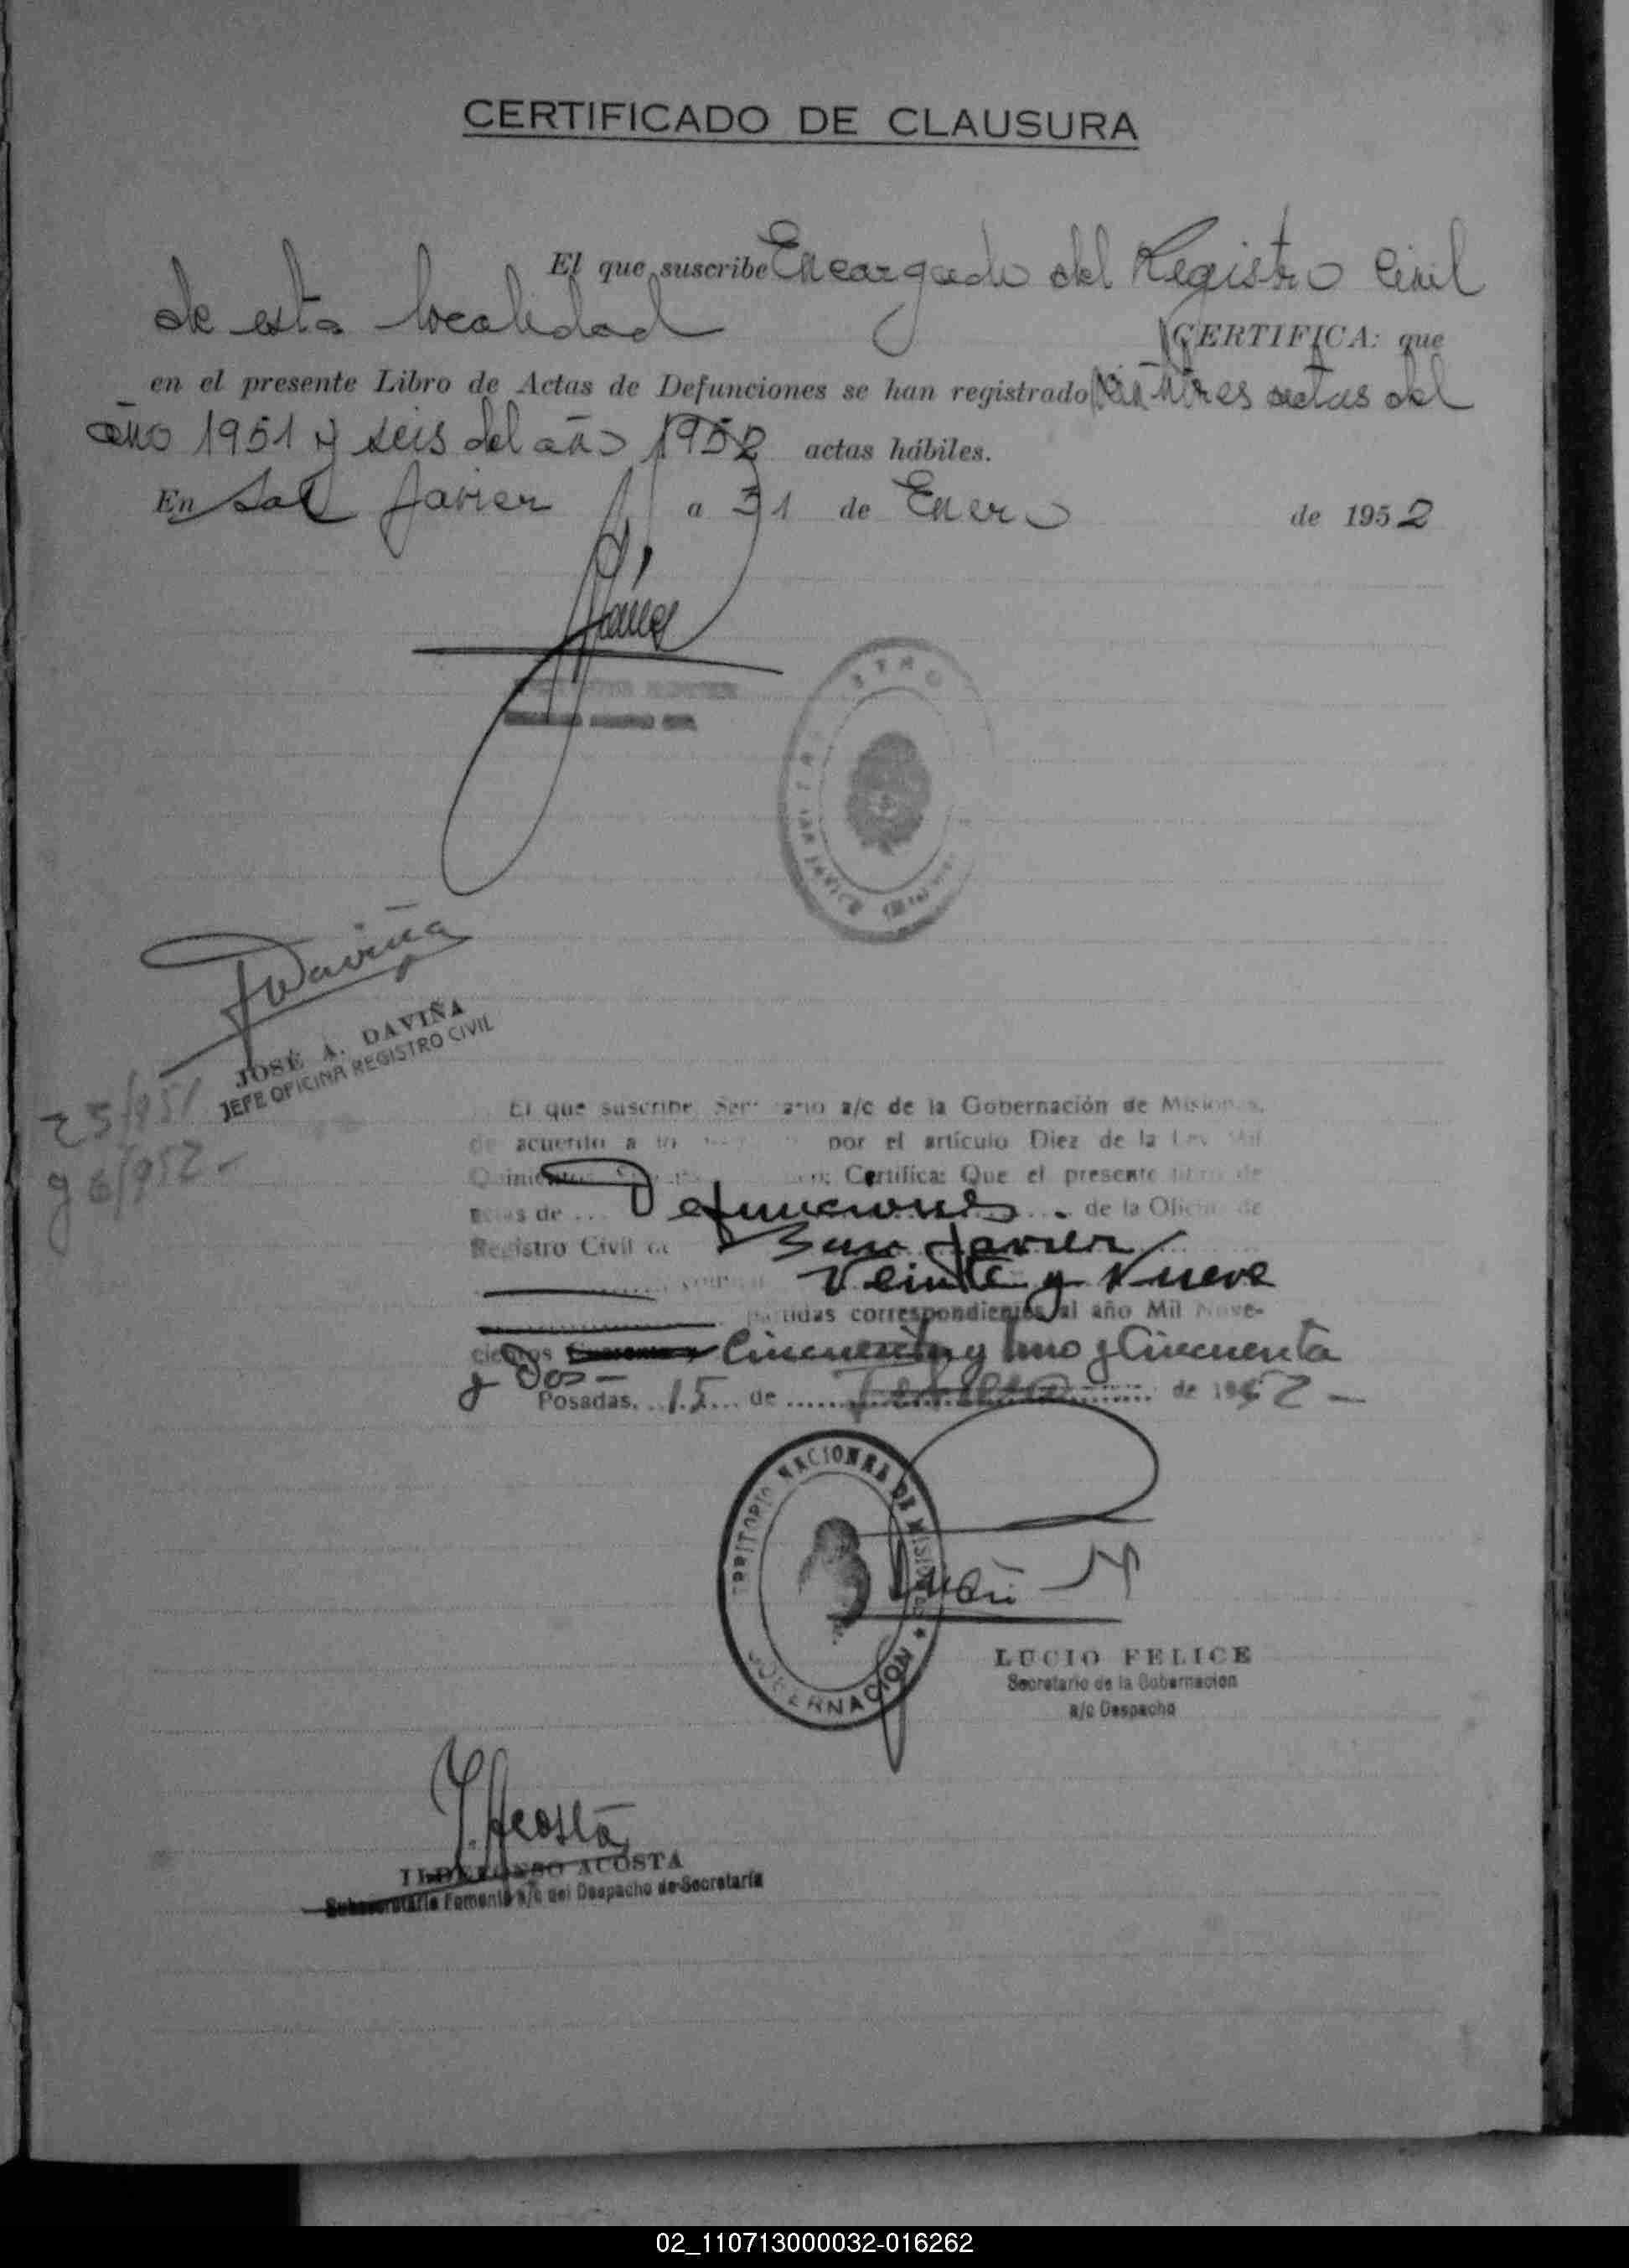 CERTIFICADO DE CLAUSURA
El que suscribe Encargado del Registro Civil
de esta localidad CERTIFICA: que
en el presente Libro de Actas de Defunciones se han registrado actas del
año 1951 y seis del año 1952 actas hábiles.
En San Javier a 31 de Enero de 1952
JDaviña
JOSÉ A. DAVIÑA
JEFE OFICINA REGISTRO CIVIL
El que suscribe a/c de la Gobernación de Misiones,
de acuerdo a lo por el artículo Diez de la Ley Mil
Certifica: Que el presente libro de
actas de Defunciones de la Oficina de
Registro Civil de San Javier
Veinte y Nueve
partidas correspondientes al año Mil Nove-
cientos Cincuenta y Uno y Cincuenta
y Dos -
Posadas, 15 de de 1952 -
TERRITORIO NACIONAL DE MISIONES
GOBERNACION
LUCIO FELICE
Secretario de la Gobernacion
a/c Despacho
Y. Acosta
ILDEFONSO ACOSTA
Subsecretario Fomento a/c del Despacho de Secretaría
02_110713000032-016262